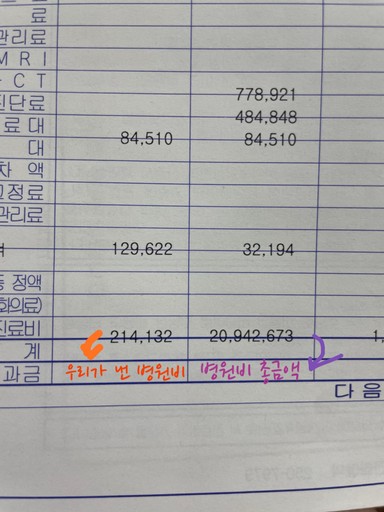 료
관리료
M R I
C T
진단료 778,921
료 대 484,848
대 84,510 84,510
차 액
교정료
관리료
129,622 32,194
정액
진료비 214,132 20,942,673 1,
계
과금 우리가 낸 병원비 병원비 총금액
다 음